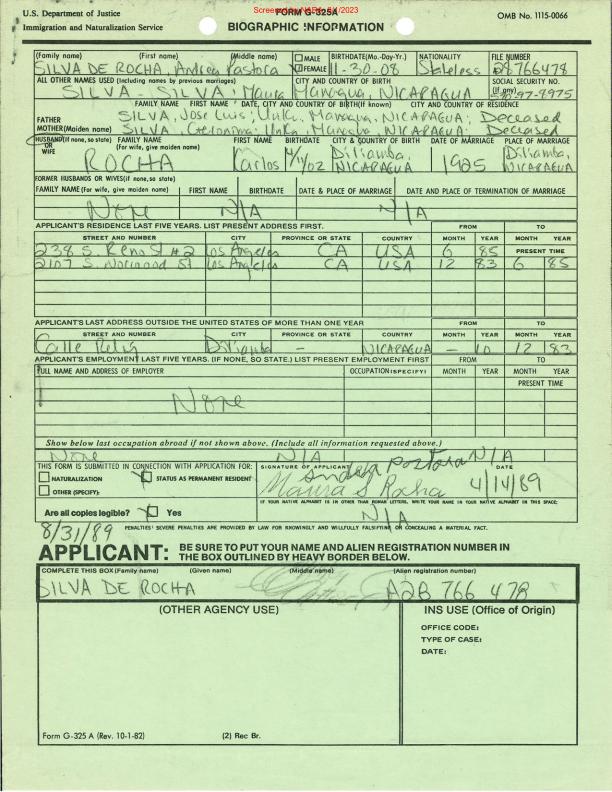 U.S. Department of Justice
Immigration and Naturalization Service
FORM G-325A
BIOGRAPHIC INFORMATION
OMB No. 1115-0066
(Family name) (First name) (Middle name) MALE FEMALE BIRTHDATE(Mo.-Day-Yr.) NATIONALITY FILE NUMBER
SILVA DE ROCHA, Andrea Pastora 11-30-08 Stateless A28766478
ALL OTHER NAMES USED (Including names by previous marriages) CITY AND COUNTRY OF BIRTH SOCIAL SECURITY NO. (If any)
SILVA - SILVA, Maura Managua, NICARAGUA
FAMILY NAME FIRST NAME DATE, CITY AND COUNTRY OF BIRTH(If known) CITY AND COUNTRY OF RESIDENCE
FATHER SILVA, Jose Luis; Unk., Managua, NICARAGUA; Deceased
MOTHER(Maiden name) SILVA, Geronima; Unk., Managua, NICARAGUA; Deceased
HUSBAND(If none, so state) OR WIFE FAMILY NAME (For wife, give maiden name) FIRST NAME BIRTHDATE CITY & COUNTRY OF BIRTH DATE OF MARRIAGE PLACE OF MARRIAGE
ROCHA Karlos Diriamba, NICARAGUA 1925 Diriamba, NICARAGUA
FORMER HUSBANDS OR WIVES(If none, so state)
FAMILY NAME (For wife, give maiden name) FIRST NAME BIRTHDATE DATE & PLACE OF MARRIAGE DATE AND PLACE OF TERMINATION OF MARRIAGE
None N/A N/A
APPLICANT'S RESIDENCE LAST FIVE YEARS. LIST PRESENT ADDRESS FIRST. FROM TO
STREET AND NUMBER CITY PROVINCE OR STATE COUNTRY MONTH YEAR MONTH YEAR
238 S. Reno St #2 Los Angeles CA USA 6 85 PRESENT TIME
2107 S. Normand St Los Angeles CA USA 12 83 6 85
APPLICANT'S LAST ADDRESS OUTSIDE THE UNITED STATES OF MORE THAN ONE YEAR FROM TO
STREET AND NUMBER CITY PROVINCE OR STATE COUNTRY MONTH YEAR MONTH YEAR
Calle Diriamba - NICARAGUA - 10 12 83
APPLICANT'S EMPLOYMENT LAST FIVE YEARS. (IF NONE, SO STATE.) LIST PRESENT EMPLOYMENT FIRST FROM TO
FULL NAME AND ADDRESS OF EMPLOYER OCCUPATION(SPECIFY) MONTH YEAR MONTH YEAR
PRESENT TIME
None
Show below last occupation abroad if not shown above. (Include all information requested above.)
None N/A N/A
THIS FORM IS SUBMITTED IN CONNECTION WITH APPLICATION FOR: SIGNATURE OF APPLICANT DATE
NATURALIZATION STATUS AS PERMANENT RESIDENT
OTHER (SPECIFY):
Andrea Pastora
Maura S Rocha 4/14/89
IF YOUR NATIVE ALPHABET IS IN OTHER THAN ROMAN LETTERS, WRITE YOUR NAME IN YOUR NATIVE ALPHABET IN THIS SPACE:
Are all copies legible? Yes N/A
8/31/89
PENALTIES: SEVERE PENALTIES ARE PROVIDED BY LAW FOR KNOWINGLY AND WILLFULLY FALSIFYING OR CONCEALING A MATERIAL FACT.
APPLICANT: BE SURE TO PUT YOUR NAME AND ALIEN REGISTRATION NUMBER IN
THE BOX OUTLINED BY HEAVY BORDER BELOW.
COMPLETE THIS BOX (Family name) (Given name) (Middle name) (Alien registration number)
SILVA DE ROCHA A28 766 478
(OTHER AGENCY USE)
INS USE (Office of Origin)
OFFICE CODE:
TYPE OF CASE:
DATE:
Form G-325 A (Rev. 10-1-82) (2) Rec Br.